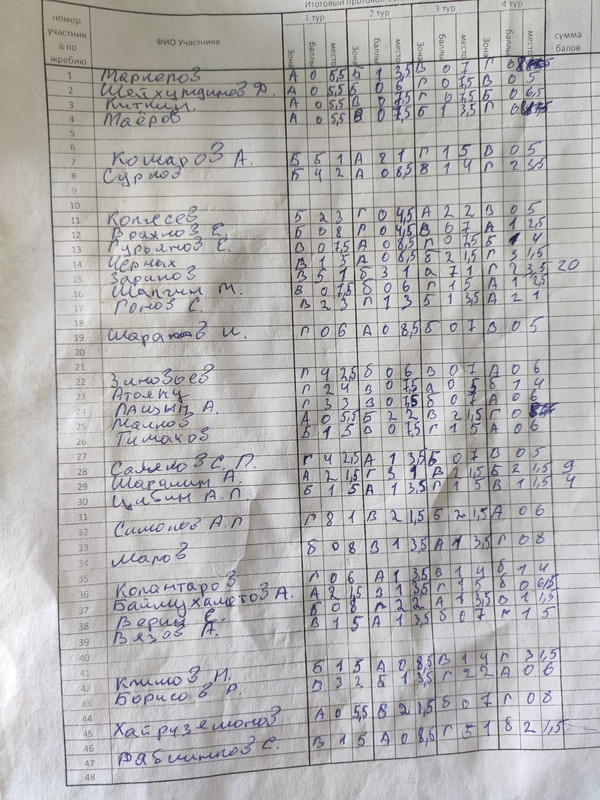 Итоговый протокол
номер участника по жребию ФИО Участника 1 тур 2 тур 3 тур 4 тур сумма балов
Зона баллы место Зона баллы место Зона баллы место Зона баллы место
1 Маркеров А 0 5,5 Б 1 3,5 В 0 7 Г 0
2 Шейхутдинов Р. А 0 5,5 Б 0 6 Г 0 7,5 В 0 5
3 А 0 5,5 В 0 7,5 Г 0 7,5 Б 0 6,5
4 Маёров А 0 5,5 В 0 7,5 Б 1 3,5 Г 0
5
6
7 Комаров А. Б 5 1 А 2 1 Г 1 5 В 0 5
8 Сурков Б 4 2 А 0 8,5 В 1 4 Г 2 3,5
9
10
11 Б 2 3 Г 0 4,5 А 2 2 В 0 5
12 Е. Б 0 8 Г 0 4,5 В 0 7 А 1 2,5
13 Гурьянов Е. В 0 7,5 А 0 8,5 Г 0 7,5 Б 1 4
14 Черных В 1 5 А 0 8,5 б 2 1,5 Г 3 1,5
15 Зарипов В 5 1 б 3 1 а 7 1 Г 2 3,5 20
16 Шапгин М. В 0 7,5 б 0 6 Г 1 5 А 1 2,5
17 Гонов С. В 2 3 Г 1 3 б 1 3,5 А 2 1
18
19 И. Г 0 6 А 0 8,5 б 0 7 В 0 5
20
21
22 Зиновьев Г 4 2,5 б 0 6 В 0 7 А 0 6
23 Г 2 4 В 0 7,5 а 0 5 б 1 4
24 А. Г 3 3 В 0 7,5 б 0 7 А 0 6
25 Маиков А 0 5,5 Б 2 2 В 2 1,5 Г 0
26 Тимаков Б 1 5 В 0 7,5 Г 1 5 А 0 6
27
28 С. П. Г 4 2,5 А 1 3,5 Б 0 7 В 0 5
29 Шарапин А. А 2 1,5 Г 3 1 В 2 1,5 Б 2 1,5 9
30 Цивин А.П. Б 1 5 А 1 3,5 Г 1 5 В 1 1,5 4
31
32 Симонов А.П Г 8 1 В 2 1,5 Б 2 1,5 А 0 6
33
34 Маров б 0 8 В 1 3,5 А 1 3,5 Г 0 8
35
36 Колантаров Г 0 6 А 1 3,5 В 1 4 б 1 4
37 Баймухаметов А. А 2 1,5 В 1 3,5 Г 1 5 б 0 6,5
38 Верин Е. Б 0 8 Г 2 2 А 1 3,5 В 1 1,5
39 Вязов А. В 1 5 А 1 3,5 б 0 7 Г 1 5
40
41
42 Климов Н. Б 1 5 А 0 8,5 В 1 4 Г 3 1,5
43 Борисов Р. В 3 2 Б 1 3,5 Г 2 2 А 0 6
44
45 А 0 5,5 В 2 1,5 б 0 7 Г 0 8
46
47 С. В 1 5 А 0 8,5 Г 5 1 б 2 1,5
48